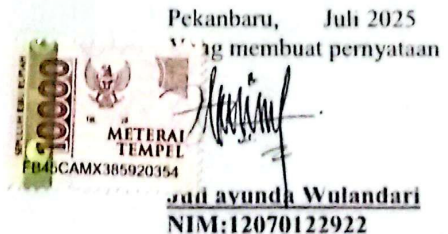 Pekanbaru, Juli 2025
Yang membuat pernyataan
SEPULUH RIBU RUPIAH
10000
METERAI
TEMPEL
FB45CAMX385920354
ayunda Wulandari
NIM:12070122922